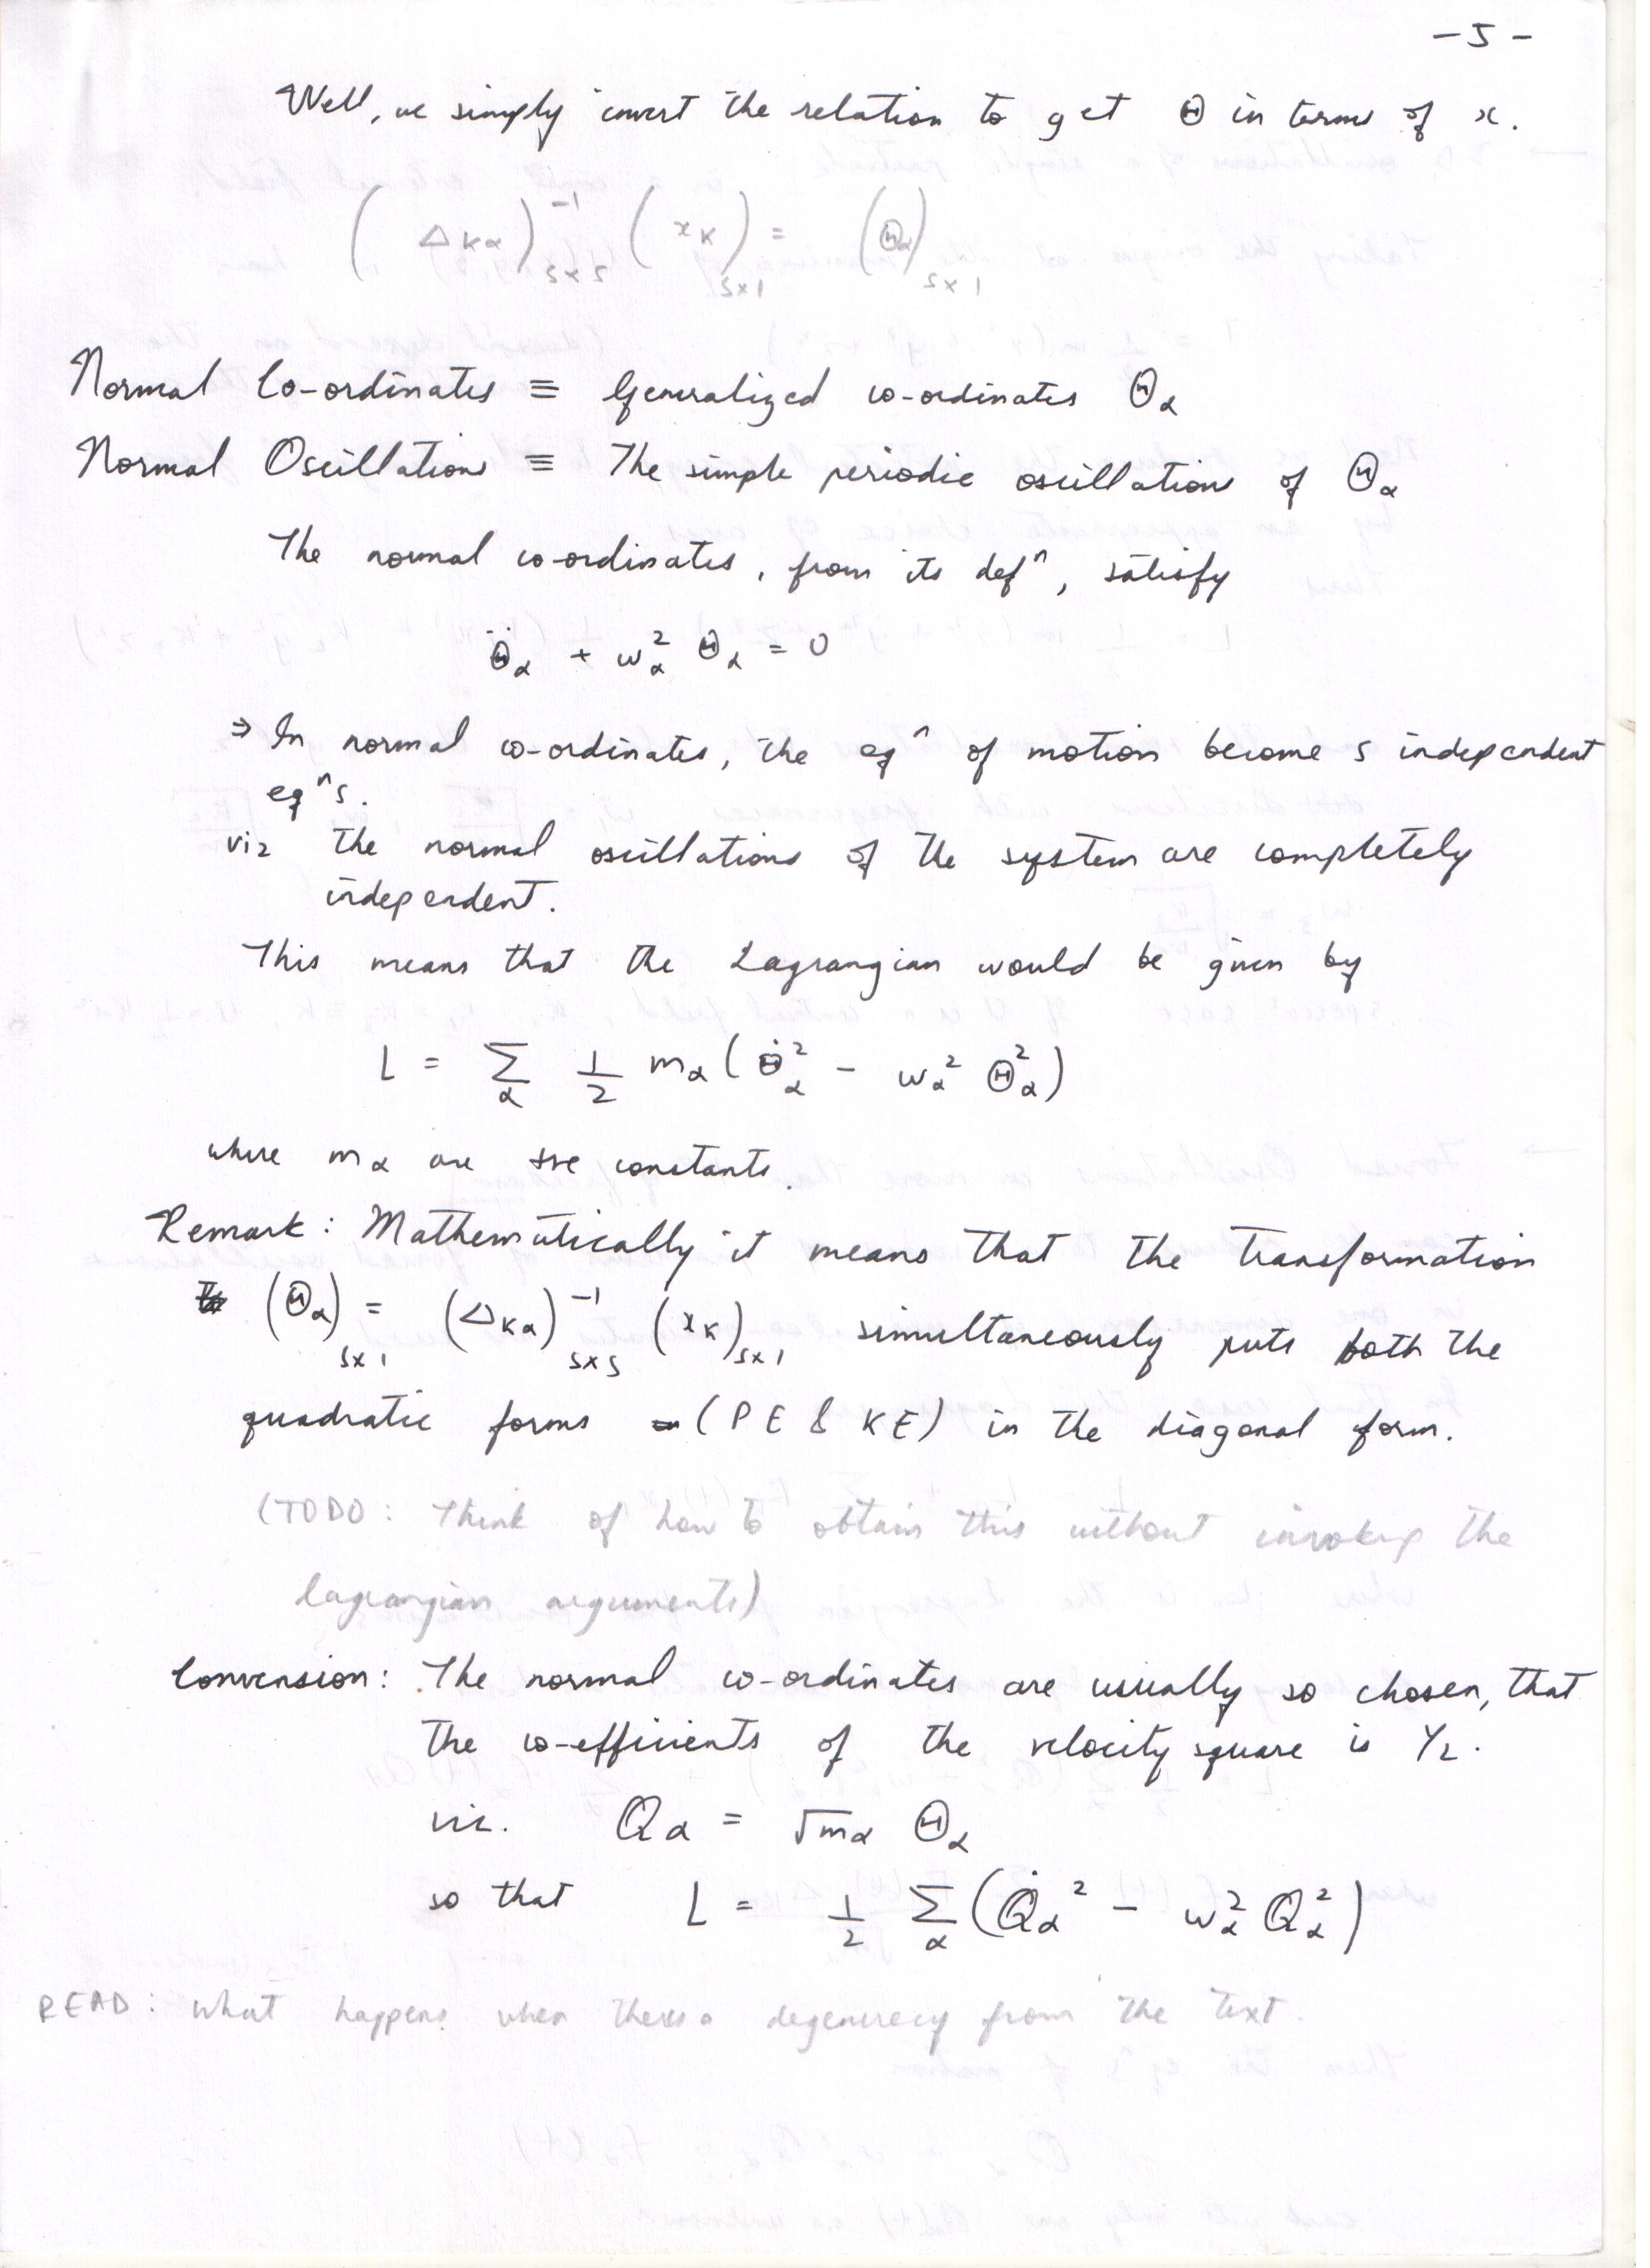 -5-
Well, we simply invert the relation to get Θ in terms of x.
(Δkα)⁻¹ₛₓₛ (xk)ₛₓ₁ = (Θα)ₛₓ₁
Normal Co-ordinates ≡ Generalized co-ordinates Θα
Normal Oscillations ≡ The simple periodic oscillations of Θα
The normal co-ordinates, from its defⁿ, satisfy
Θ̈α + ωα² Θα = 0
⇒ In normal co-ordinates, the eqⁿ of motion become s independent
eqⁿs.
viz the normal oscillations of the system are completely
independent.
This means that the Lagrangian would be given by
L = Σα 1/2 mα (Θ̇α² - ωα² Θα²)
where mα are +ve constants.
Remark: Mathematically it means that the transformation
(Θα)ₛₓ₁ = (Δkα)⁻¹ₛₓₛ (xk)ₛₓ₁ simultaneously puts both the
quadratic forms (PE & KE) in the diagonal form.
(TODO: Think of how to obtain this without invoking the
lagrangian arguments)
Convension: The normal co-ordinates are usually so chosen, that
the co-efficients of the velocity square is 1/2.
viz. Qα = √mα Θα
so that L = 1/2 Σα (Q̇α² - ωα² Qα²)
READ: what happens when theres a degeneracy from the text.